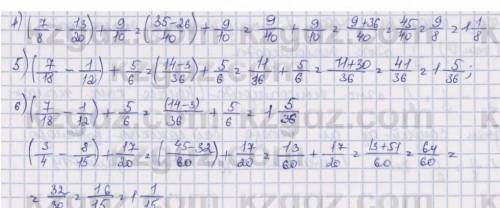 4) (7/8 - 13/20) + 9/10 = (35-26/40) + 9/10 = 9/40 + 9/10 = 9+36/40 = 45/40 = 9/8 = 1 1/8
5) (7/18 - 1/12) + 5/6 = (14-3)/36 + 5/6 = 11/36 + 5/6 = 11+30/36 = 41/36 = 1 5/36;
6) (7/18 - 1/12) + 5/6 = (14-3)/36 + 5/6 = 1 5/36
(3/4 - 8/15) + 17/20 = (45-32/60) + 17/20 = 13/60 + 17/20 = 13+51/60 = 64/60 =
= 32/30 = 16/15 = 1 1/15